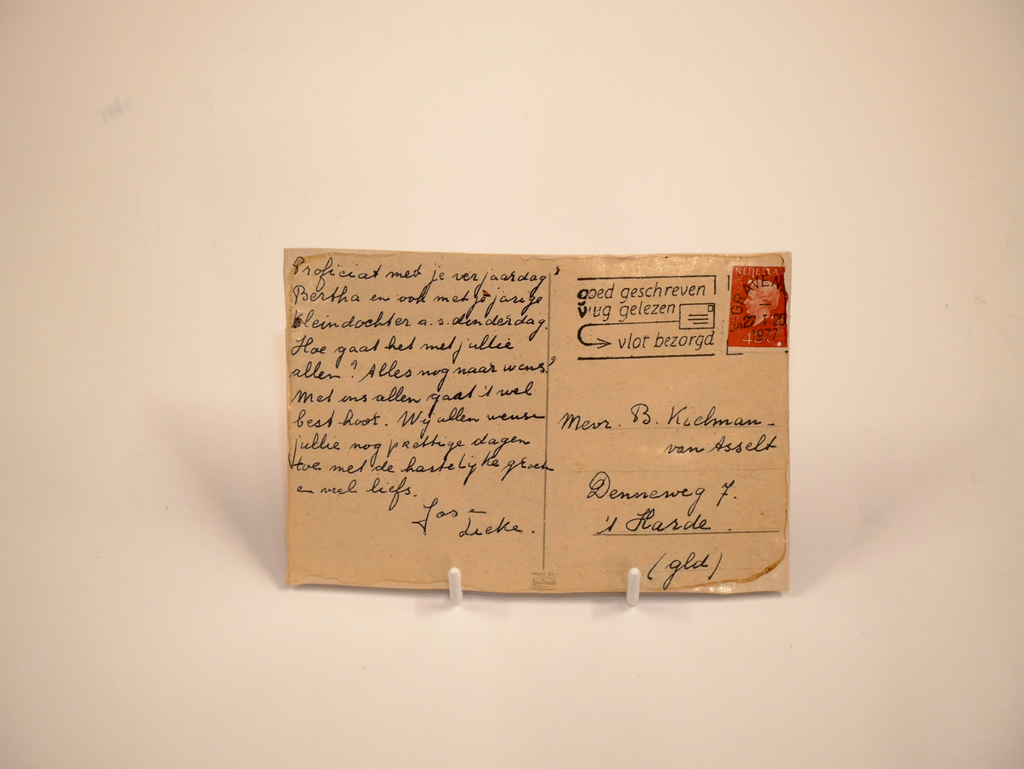 Proficiat met je verjaardag
Bertha en ook met je jarige
kleindochter a.s. dinderdag.
Hoe gaat het met jullie
allen? Alles nog naar wens?
Met ons allen gaat 't wel
best hoor. Wij allen wensen
jullie nog prettige dagen
toe met de hartelijke groeten
en veel liefs.
Jos en
Lieke.
goed geschreven
vlug gelezen
vlot bezorgd
NEDERLA
'S-GRAVEN
1977
Mevr. B. Kielman-
van Asselt
Denneweg 7.
't Harde.
(gld)